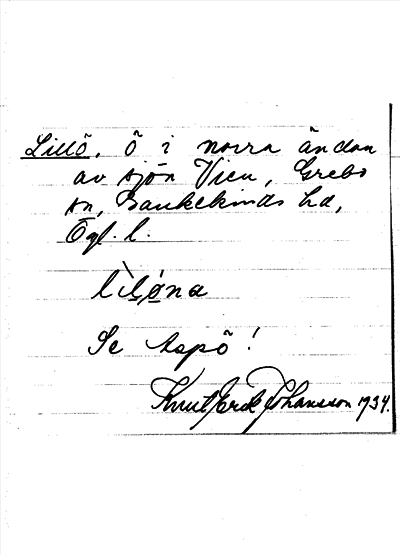 Lillö, ö i norra ändan
av sjön Vien, Grebo
sn, Bankekinds hd,
Ögl. l.
Se Aspö!
Knut Erik Johansson 1934.